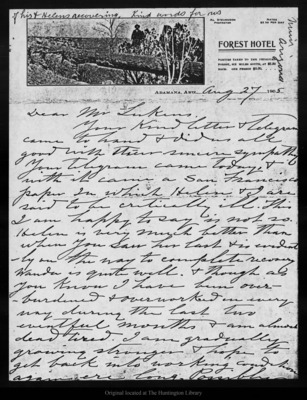 of his & Helen's recovering. Kind words for us
FOREST HOTEL
ADAMANA, ARIZ. Aug 27 1905
Muir
Arizona
Dear Mr Lukens,
Your kind letter & telegram
came to hand & did us all
good with their sincere sympathy
You telegram today &
with it came a San Fran
paper In which Helen & I are
said to be critically ill this
I am happy to say is not so.
Helen is very much better than
when you saw her last & is evident-
ly on the way to complete recovery
Wanda is quite well & though as
you know I have been over-
burdened & overworked in every
way during the last two
eventful months & am almost
dead tired. I am gradually
growing stronger & hope to
get back into working
again
Original located at The Huntington Library